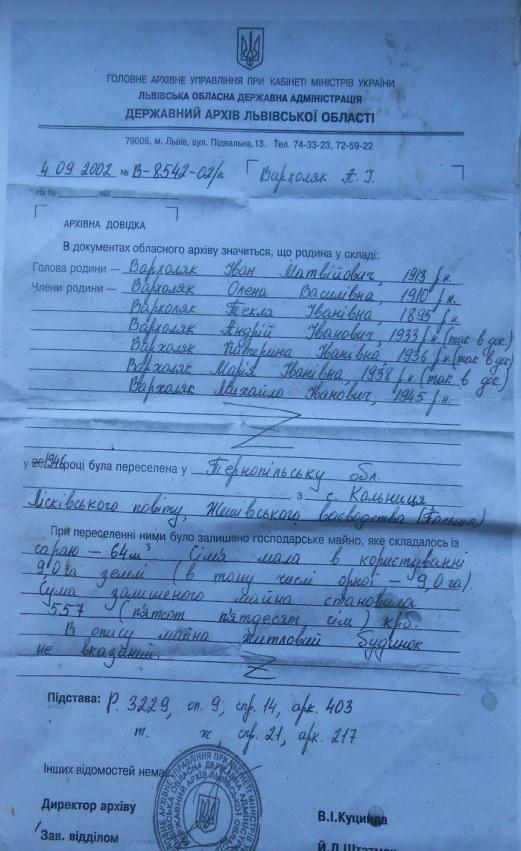 ГОЛОВНЕ АРХІВНЕ УПРАВЛІННЯ ПРИ КАБІНЕТІ МІНІСТРІВ УКРАЇНИ
ЛЬВІВСЬКА ОБЛАСНА ДЕРЖАВНА АДМІНІСТРАЦІЯ
ДЕРЖАВНИЙ АРХІВ ЛЬВІВСЬКОЇ ОБЛАСТІ
79008, м. Львів, вул. Підвальна, 13. Тел. 74-33-23, 72-59-22
4.09.2002 № В-8542-02/п Вархоляк А. І.
На № від
АРХІВНА ДОВІДКА
В документах обласного архіву значиться, що родина у складі:
Голова родини — Вархоляк Іван Матвійович, 1913 р.н.
Члени родини — Вархоляк Олена Василівна, 1910 р.н.
Вархоляк Текла Іванівна, 1895 р.н.
Вархоляк Андрій Іванович, 1933 р.н. (так в док.)
Вархоляк Катерина Іванівна 1936 р.н. (так в док.)
Вархоляк Марія Іванівна, 1938 р.н. (так в док.)
Вархоляк Михайло Іванович, 1945 р.н.
у 1946 році була переселена у Тернопільську обл.
з с. Кальниця
Ліськівського повіту, Жешівського воєводства (Польща)
При переселенні ними було залишено господарське майно, яке складалось із
сараю — 64 м³ Сім'я мала в користуванні
9,0 га землі (в тому числі орної — 9,0 га)
Сума залишеного майна становила
557 (п'ятсот п'ятдесят сім) крб.
В опису майна житловий будинок
не вказаний.
Підстава: Р. 3229, оп. 9, спр. 14, арк. 403
т. ж, спр. 21, арк. 217
Інших відомостей немає.
Директор архіву В.І.Куцинда
Зав. відділом